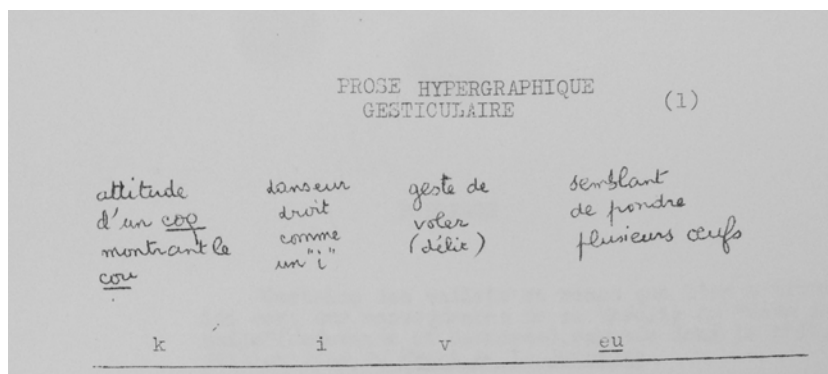 PROSE HYPERGRAPHIQUE
GESTICULAIRE
(1)
attitude
d'un coq
montrant le
cou
danseur
droit
comme
un "i"
geste de
voler
(délit)
semblant
de pondre
plusieurs œufs
k i v eu